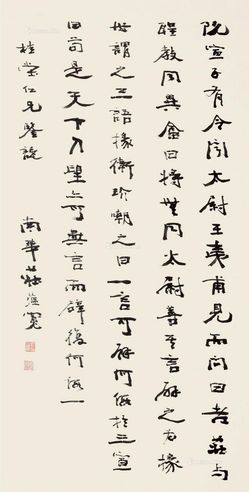 阮宣子有令聞太尉王夷甫見而問曰老莊与
聖教同異畣曰將無同太尉善亓言辟之為掾
世謂之三語掾衛玠嘲之曰一言可辟何假於三宣
曰苟是天下人望亦可無言而辟復何假一
仁兄鑒
南華莊蘊寬